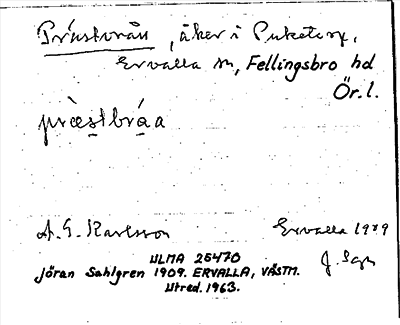 Prästbrån, åker i Puketorp,
Ervalla sn, Fellingsbro hd
Ör.l.
præstbráa
A. G. Karlsson Ervalla 1909
ULMA 25470 J. Sgn
Jöran Sahlgren 1909. ERVALLA, VÄSTM.
Utred. 1963.